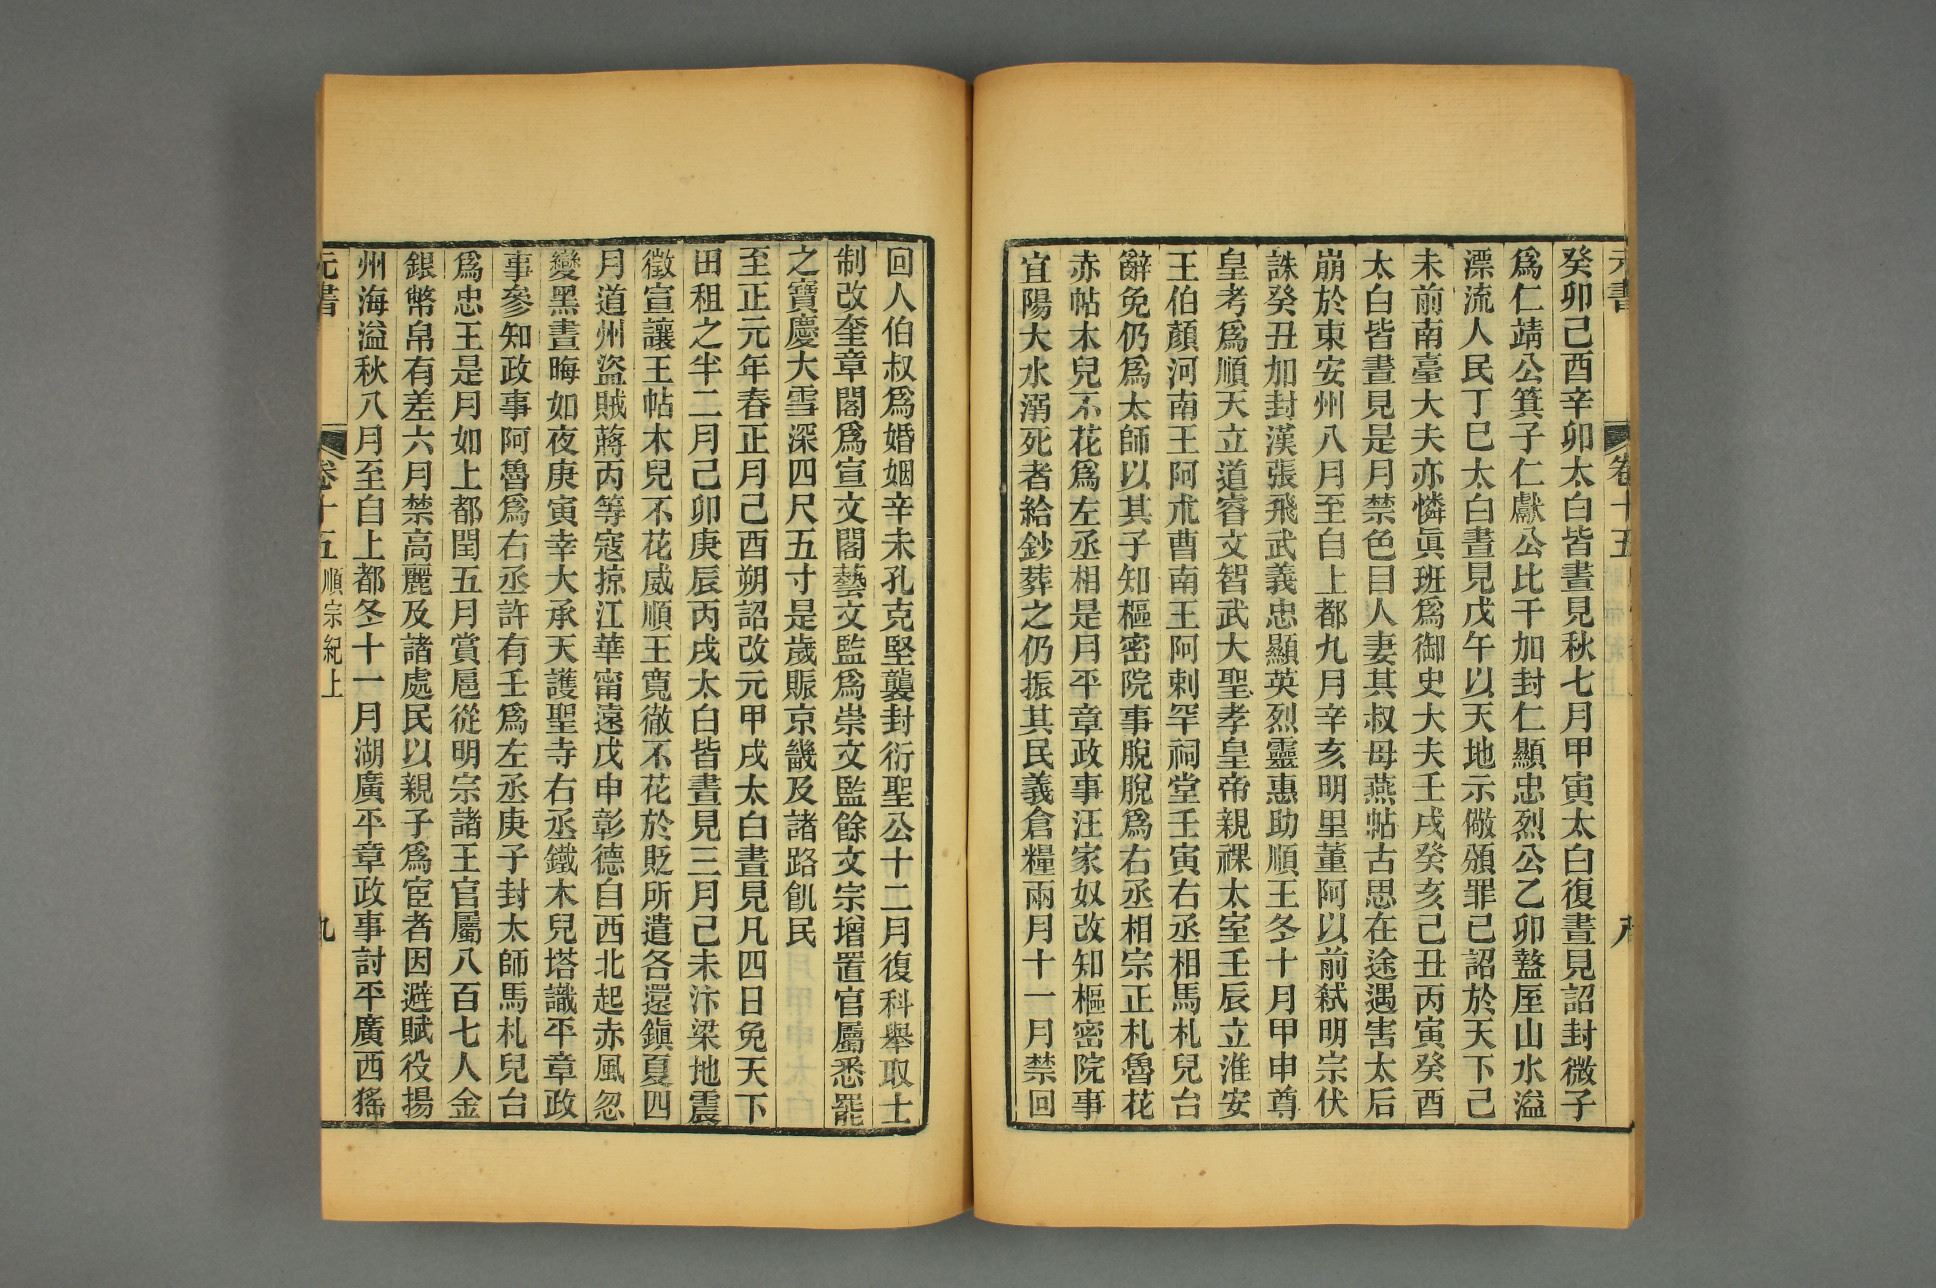 元書
卷十五
癸卯己酉辛卯太白皆晝見秋七月甲寅太白復晝見詔封微子
爲仁靖公箕子仁獻公比干加封仁顯忠烈公乙卯盩厔山水溢
漂流人民丁巳太白晝見戊午以天地示儆頒罪已詔於天下己
未前南臺大夫亦憐眞班爲御史大夫壬戌癸亥己丑丙寅癸酉
太白皆晝見是月禁色目人妻其叔母燕帖古思在途遇害太后
崩於東安州八月至自上都九月辛亥明里董阿以前弑明宗伏
誅癸丑加封漢張飛武義忠顯英烈靈惠助順王冬十月甲申尊
皇考爲順天立道睿文智武大聖孝皇帝親祼太室壬辰立淮安
王伯顏河南王阿朮曹南王阿剌罕祠堂壬寅右丞相馬札兒台
辭免仍爲太師以其子知樞密院事脫脫爲右丞相宗正札魯花
赤帖木兒不花爲左丞相是月平章政事汪家奴改知樞密院事
宜陽大水溺死者給鈔葬之仍振其民義倉糧兩月十一月禁回
回人伯叔爲婚姻辛未孔克堅襲封衍聖公十二月復科舉取士
制改奎章閣爲宣文閣藝文監爲崇文監餘文宗增置官屬悉罷
之寶慶大雪深四尺五寸是歲賑京畿及諸路飢民
至正元年春正月己酉朔詔改元甲戌太白晝見凡四日免天下
田租之半二月己卯庚辰丙戌太白皆晝見三月己未汴梁地震
徵宣讓王帖木兒不花威順王寬徹不花於貶所遣各還鎭夏四
月道州盜賊蔣丙等寇掠江華甯遠戊申彰德自西北起赤風忽
變黑晝晦如夜庚寅幸大承天護聖寺右丞鐵木兒塔識平章政
事參知政事阿魯爲右丞許有壬爲左丞庚子封太師馬札兒台
爲忠王是月如上都閏五月賞扈從明宗諸王官屬八百七人金
銀幣帛有差六月禁高麗及諸處民以親子爲宦者因避賦役揚
州海溢秋八月至自上都冬十一月湖廣平章政事討平廣西猺
元書
卷十五 順宗紀上
九